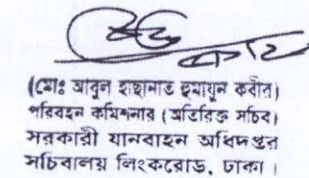 (মোঃ আবুল হাছানাত হুমায়ুন কবীর)
পরিবহন কমিশনার (অতিরিক্ত সচিব)
সরকারী যানবাহন অধিদপ্তর
সচিবালয় লিংকরোড, ঢাকা।